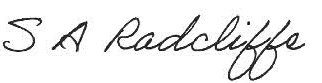 S A Radcliffe